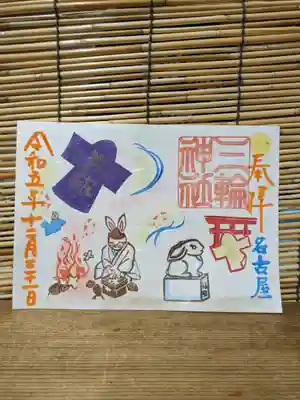 奉拝
名古屋
三輪
神社
令和五年十二月三十一日